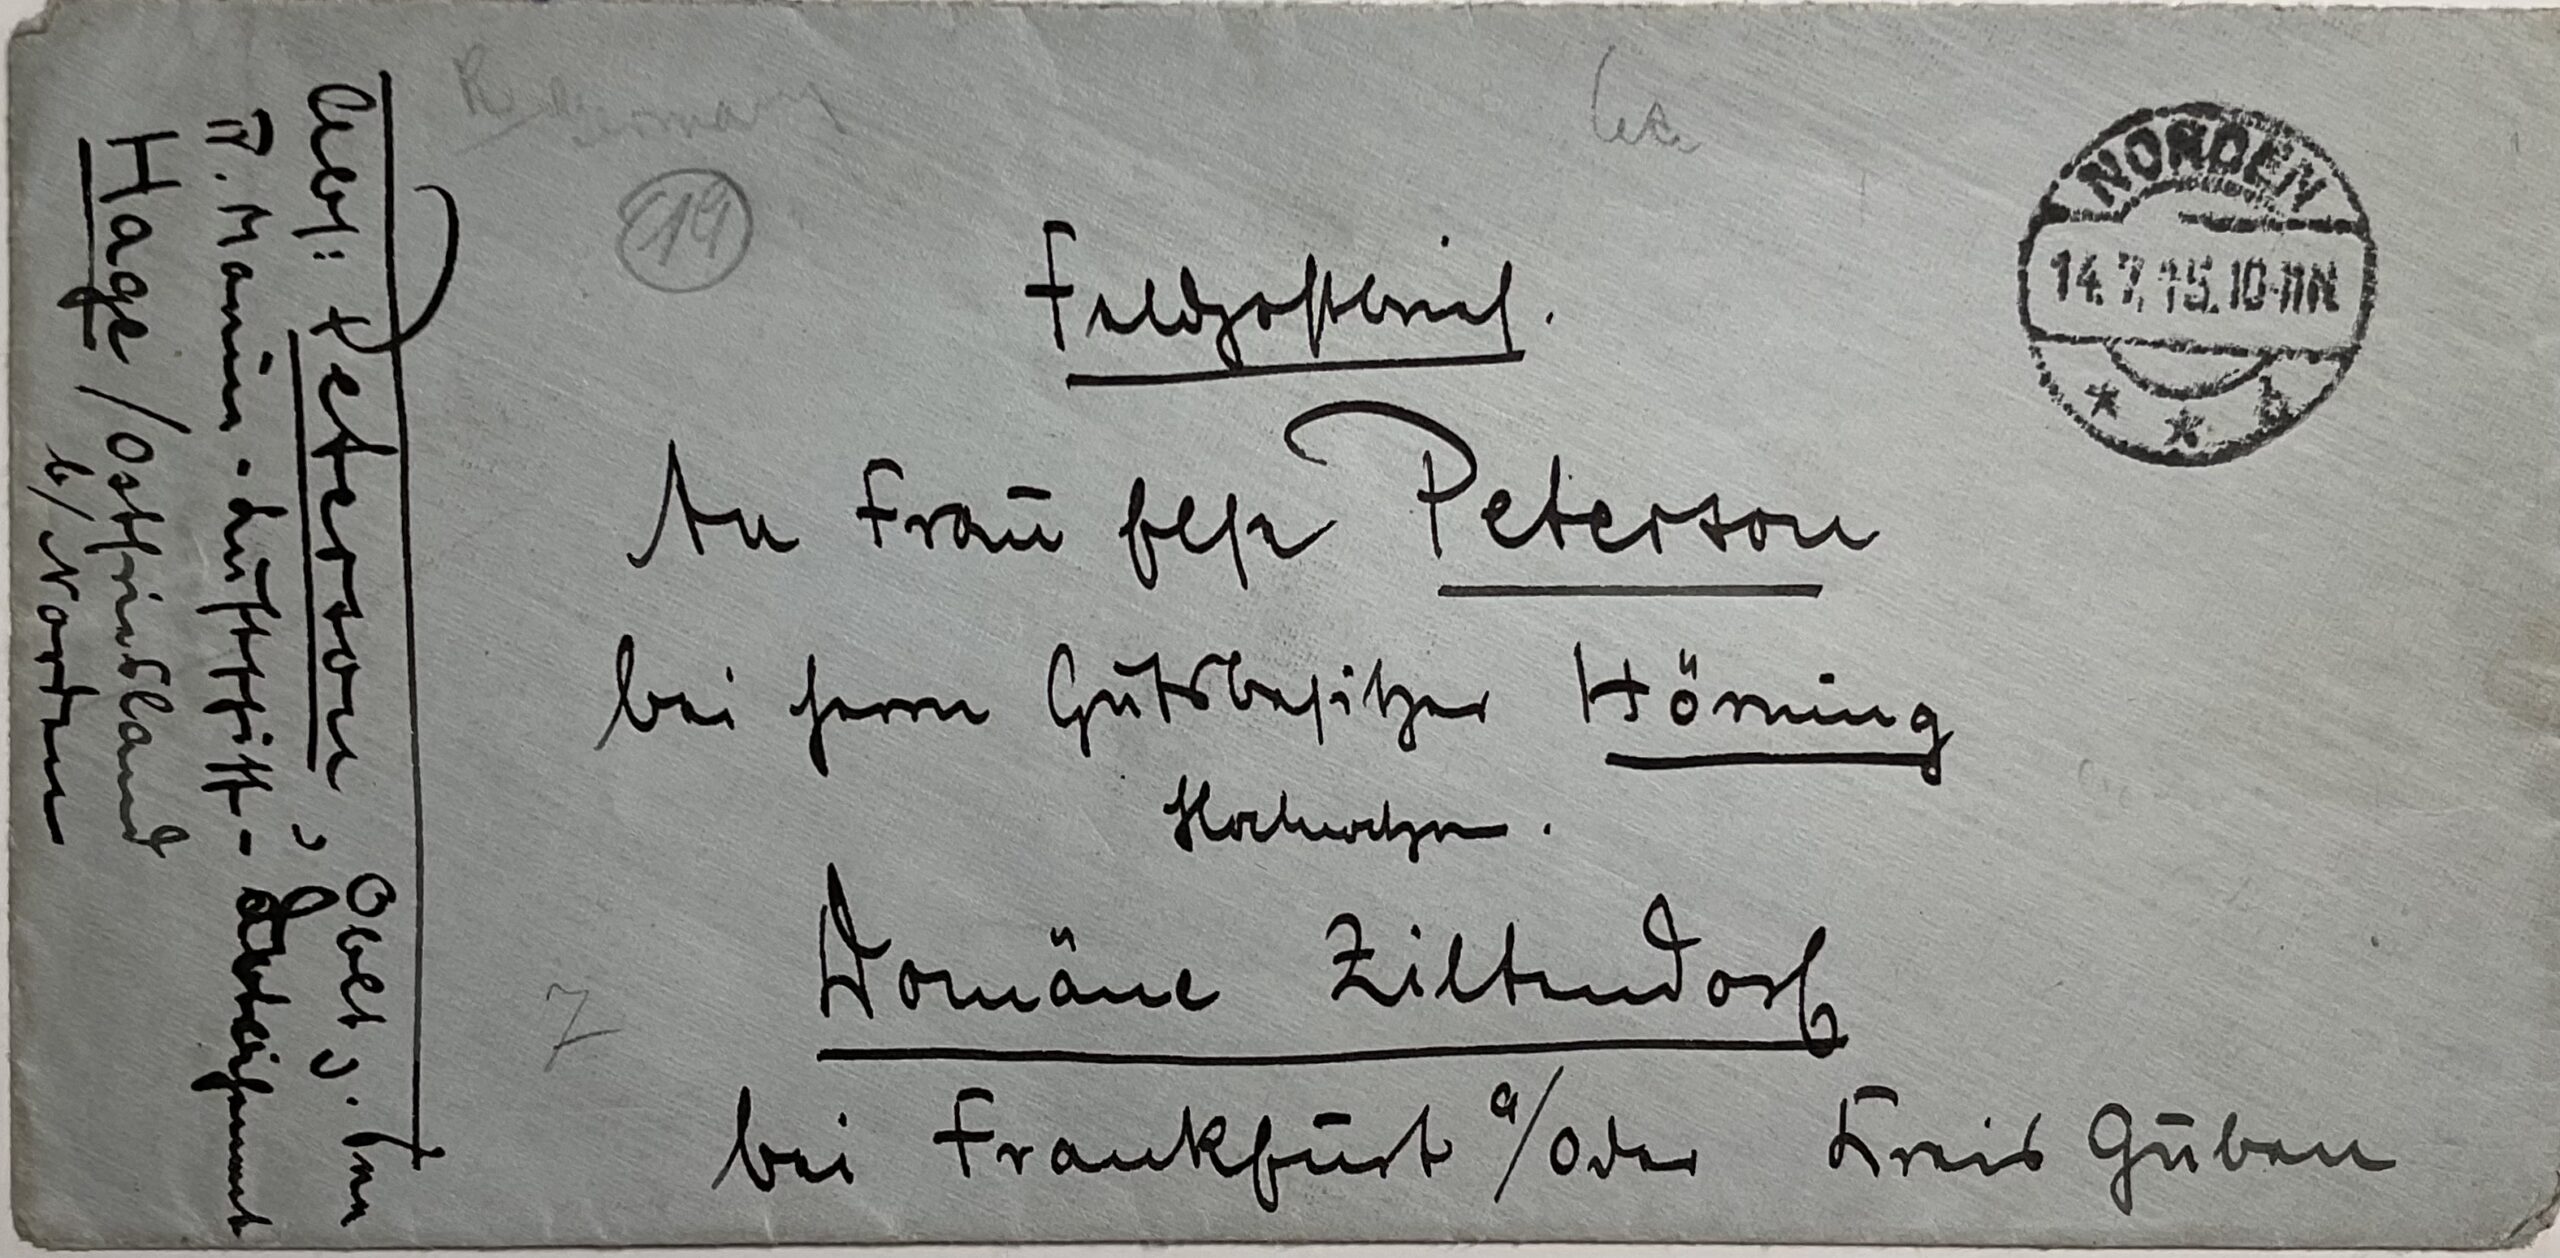 Feldpostbrief.
An Frau Else Peterson
bei Herrn Gutsbesitzer Hörning
Domäne Ziltendorf
bei Frankfurt a/Oder Kreis Guben
NORDEN
14.7.15.10-11N
* * b
Abs: Peterson, Oblt z. See
Marine-Luftschiff-
Hage / Ostfriesland
b/Norden
14
7